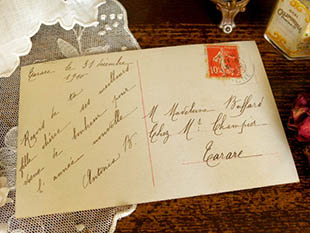 Tarare le 31 décembre
Reçois de ta
fille chérie ses meilleurs
vœux de bonheur pour
l'année nouvelle
Antonia B.
10c
M. Madeleine Buffard
Chez Mr Champier
Tarare